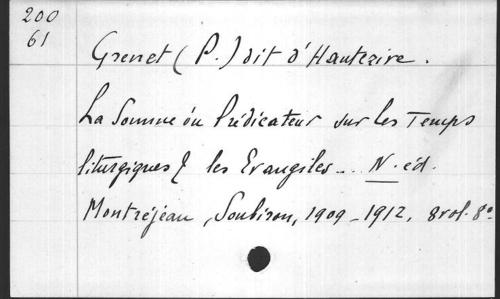 200
61
Grenet (P.) dit d'Hauterive.
La Somme du Prédicateur sur les Temps
liturgiques & les Evangiles... N. éd.
Montréjeau, Soubiron, 1909-1912, 8 vol. 8º